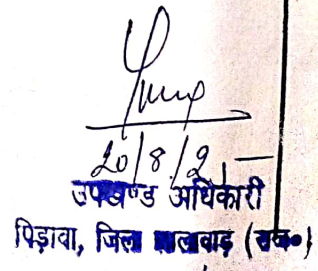 20/8/2
उपखण्ड अधिकारी
पिड़ावा, जिला झालावाड़ (राज०)